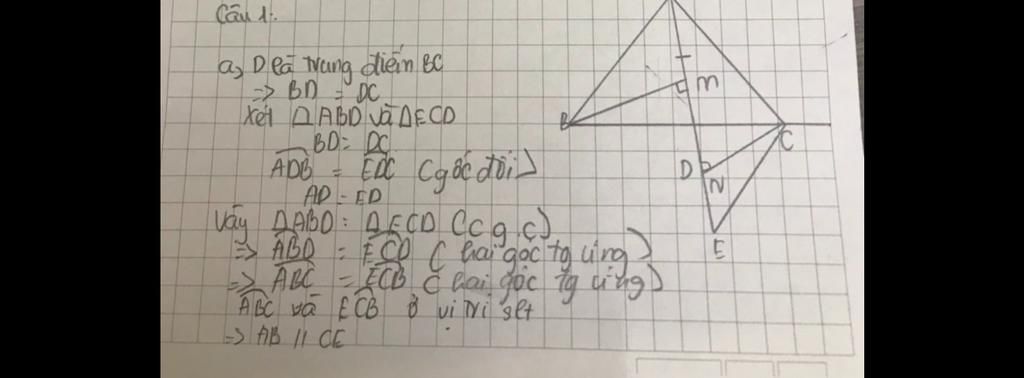 Câu 1:
a, D là trung điểm BC
=> BD = DC
Xét ΔABD và ΔECD
BD = DC
ADB = EDC (góc đối)
AD = ED
Vậy ΔABD = ΔECD (c g. c)
=> ABD = ECD (hai góc tg ứng)
=> ABC = ECB (hai góc tg ứng)
ABC và ECB ở vị trí slt
=> AB // CE
B
M
C
D
N
E